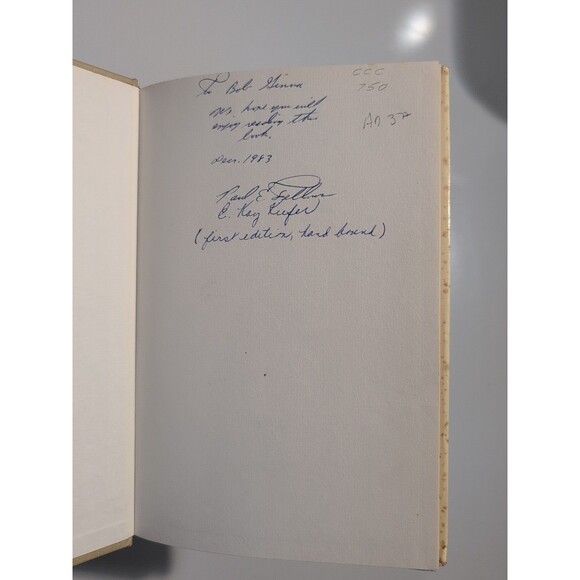 To Bob Ginna
We hope you will
enjoy reading this
book.
Dec. 1983
Paul E.
C. Kay Kiefer
(first edition, hard bound)
CCC
750